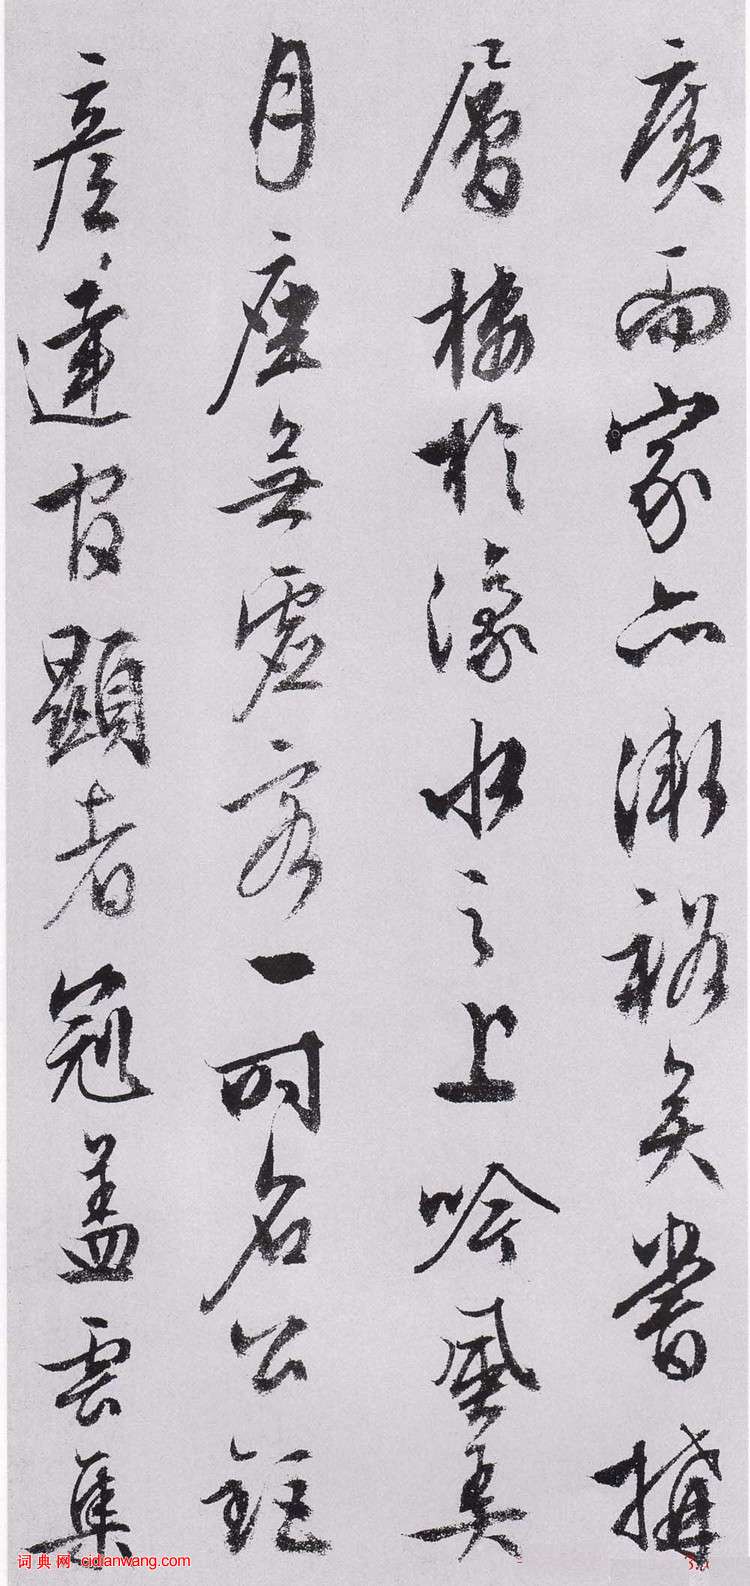 廣而家亦漸裕矣嘗搆
層樓於濠水之上吟風弄
月座無虛客一時名公鉅
彥達官顯者冠蓋雲集
词典网:cidianwang.com